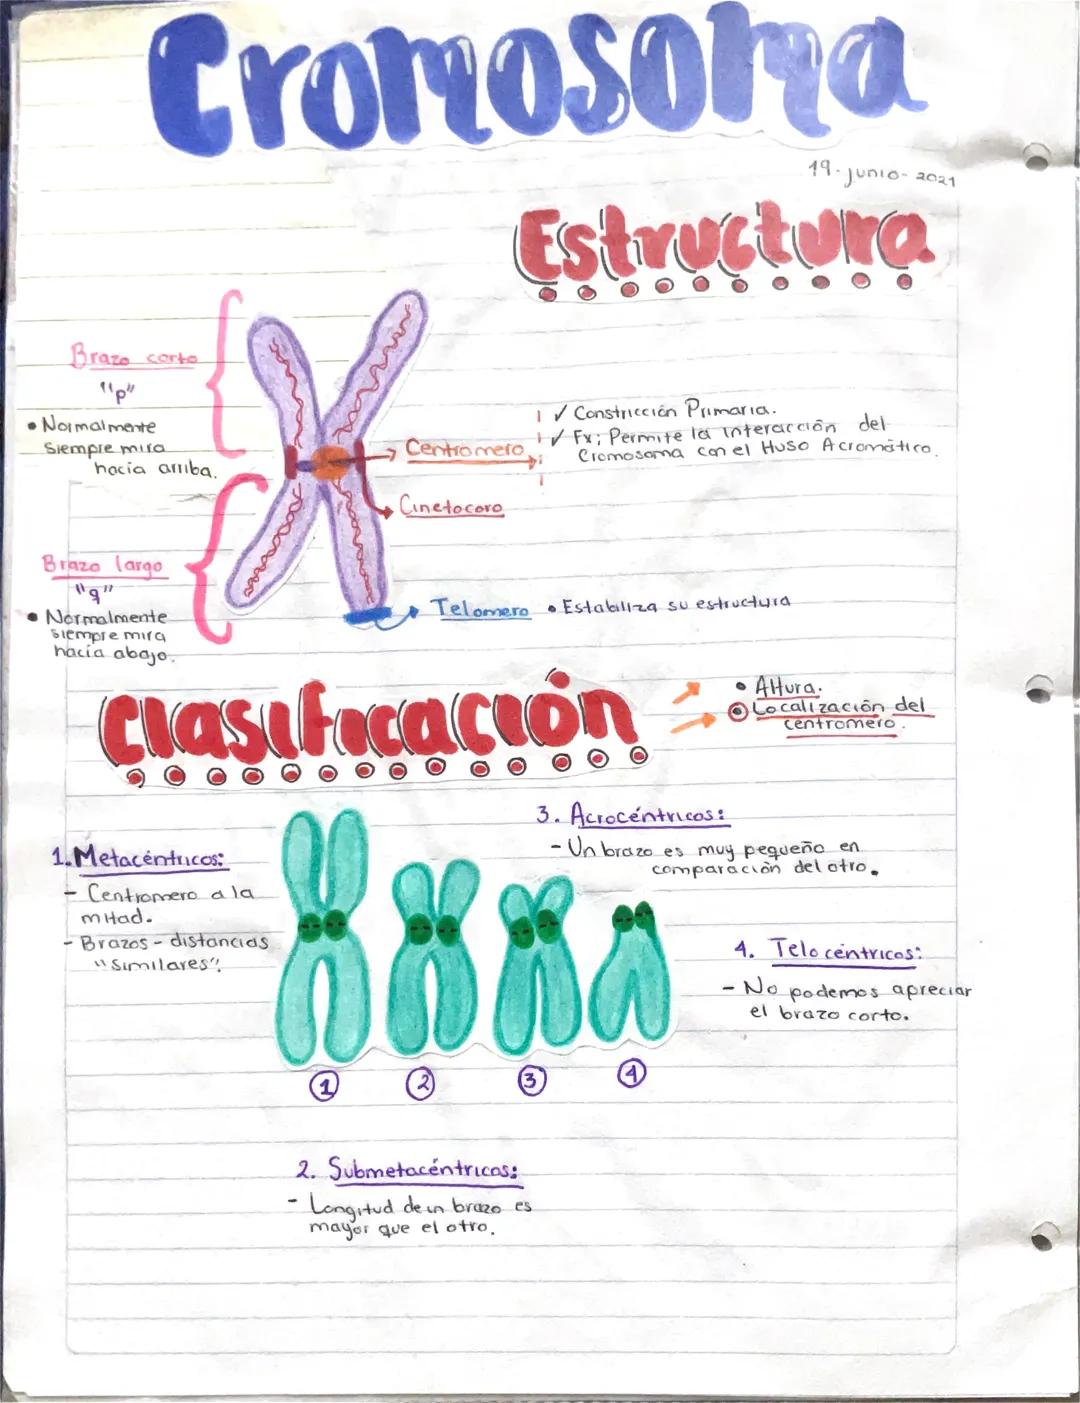 Cromosoma
19-junio-2021
Estructura
Brazo corto
"p"
• Normalmente
siempre mira
hacia arriba.
Centromero
✓ Constricción Primaria.
✓ Fx; Permite la interacción del
Cromosoma con el Huso Acromático.
Cinetocoro
Brazo largo
"q"
• Normalmente
siempre mira
hacia abajo.
Telomero • Estabiliza su estructura
Clasificación
• Altura.
• Localización del
centromero.
1. Metacéntricos:
- Centromero a la
mitad.
- Brazos - distancias
"similares".
3. Acrocéntricos:
- Un brazo es muy pequeño en
comparación del otro.
4. Telocéntricos:
- No podemos apreciar
el brazo corto.
1
2
3
4
2. Submetacéntricos:
- Longitud de un brazo es
mayor que el otro.